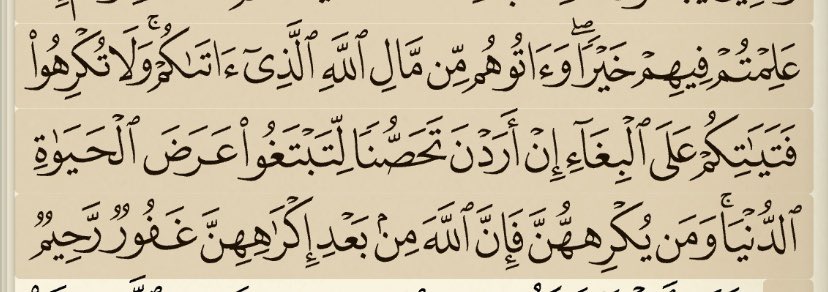 عَلِمۡتُمۡ فِيهِمۡ خَيۡرٗاۖ وَءَاتُوهُم مِّن مَّالِ ٱللَّهِ ٱلَّذِيٓ ءَاتَىٰكُمۡۚ وَلَا تُكۡرِهُواْ
فَتَيَٰتِكُمۡ عَلَى ٱلۡبِغَآءِ إِنۡ أَرَدۡنَ تَحَصُّنٗا لِّتَبۡتَغُواْ عَرَضَ ٱلۡحَيَوٰةِ
ٱلدُّنۡيَاۚ وَمَن يُكۡرِههُّنَّ فَإِنَّ ٱللَّهَ مِنۢ بَعۡدِ إِكۡرَٰهِهِنَّ غَفُورٞ رَّحِيمٞ